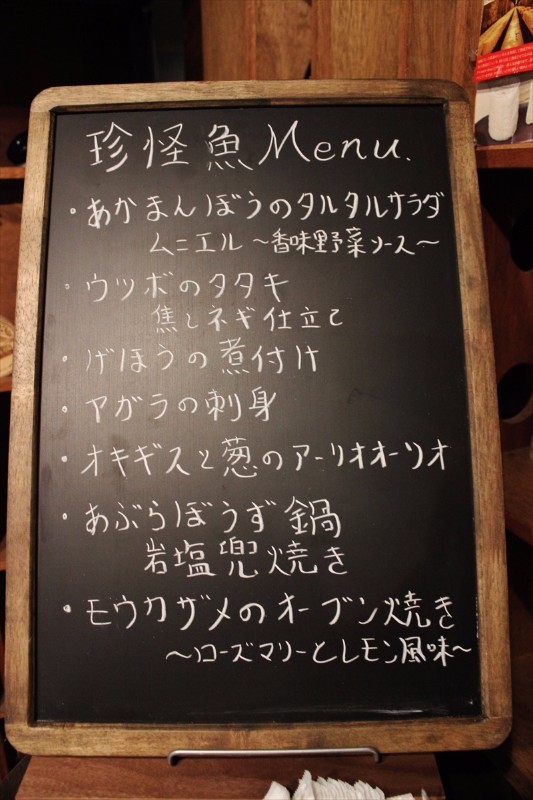 珍怪魚Menu.
・あかまんぼうのタルタルサラダ
ムニエル〜香味野菜ソース〜
・ウツボのタタキ
焦しネギ仕立て
・げほうの煮付け
・アガラの刺身
・オキギスと葱のアーリオオーリオ
・あぶらぼうず鍋
岩塩兜焼き
・モウカザメのオーブン焼き
〜ローズマリーとレモン風味〜